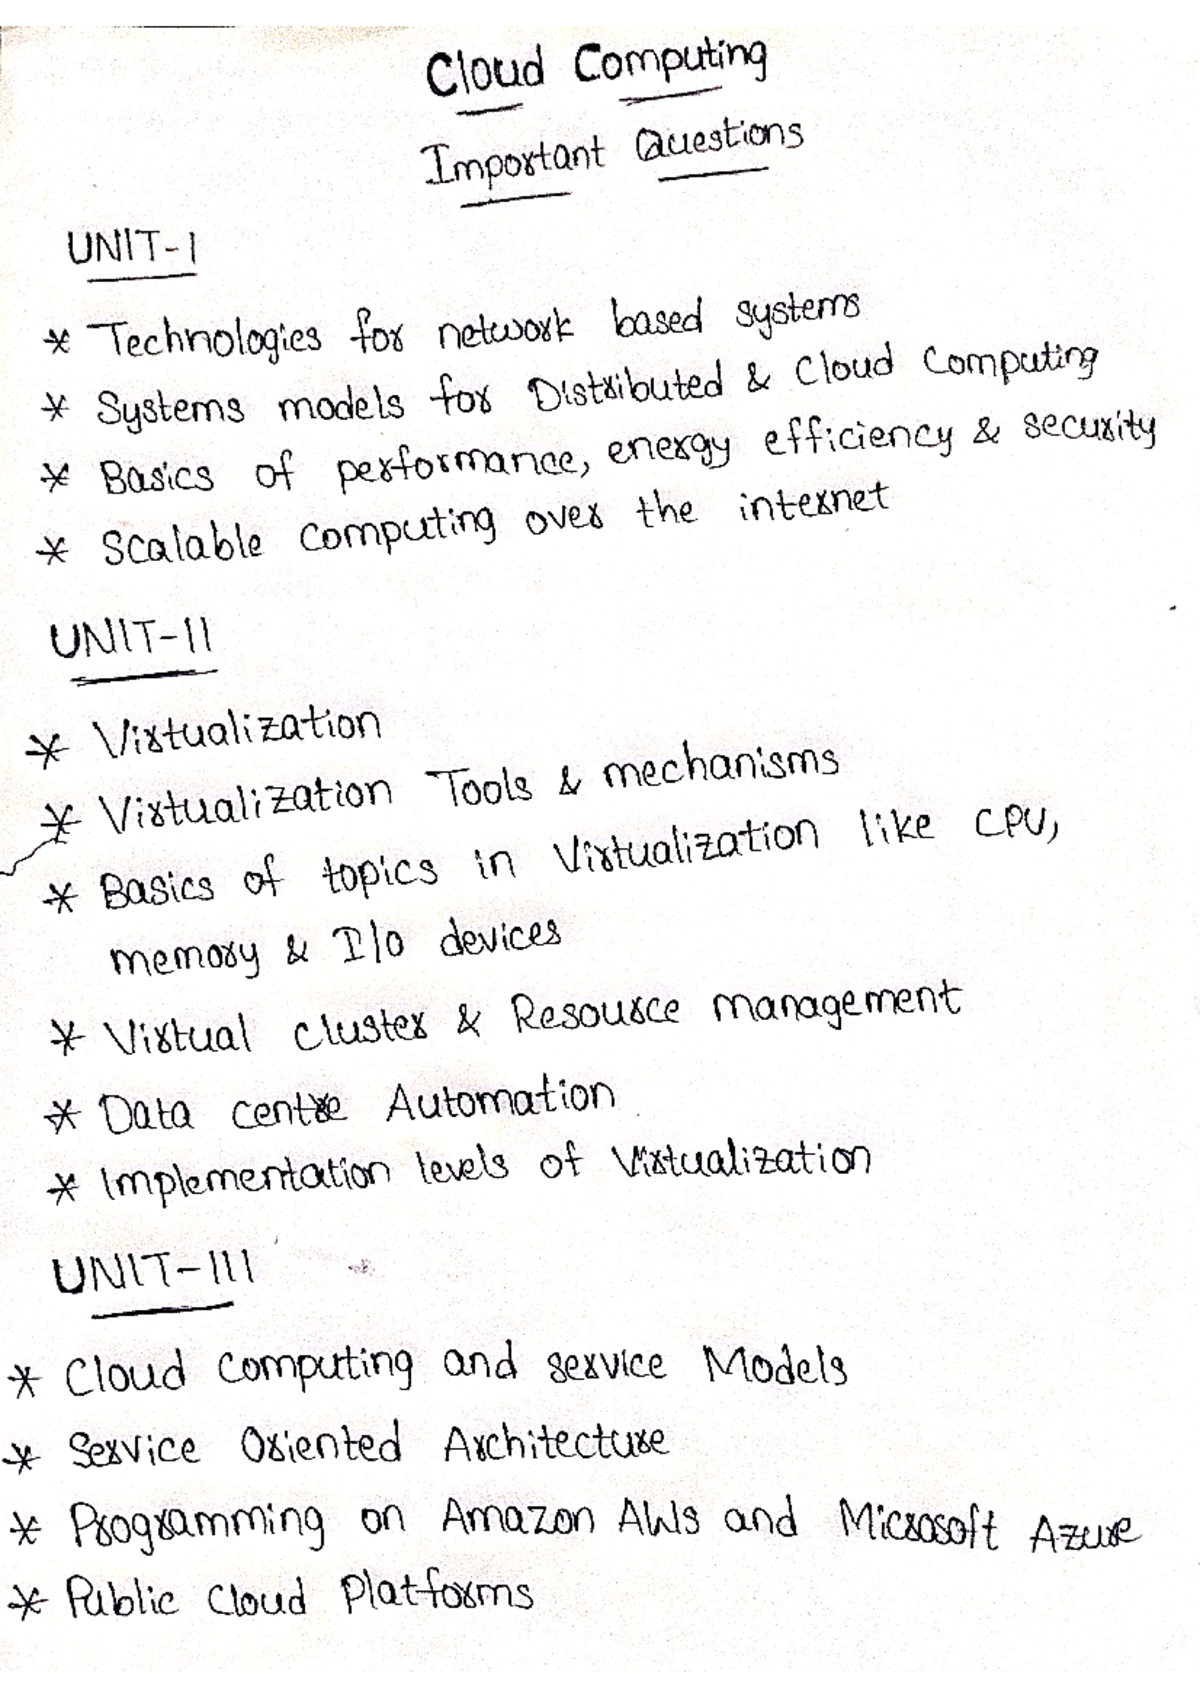 Cloud Computing
Important Questions
UNIT-I
* Technologies for network based systems
* Systems models for Distributed & Cloud Computing
* Basics of performance, energy efficiency & security
* Scalable Computing over the internet
UNIT-II
* Virtualization
* Virtualization Tools & mechanisms
* Basics of topics in Virtualization like CPU,
memory & I/O devices
* Virtual cluster & Resource management
* Data centre Automation
* Implementation levels of Virtualization
UNIT-III
* Cloud Computing and service Models
* Service Oriented Architecture
* Programming on Amazon AWS and Microsoft Azure
* Public Cloud Platforms